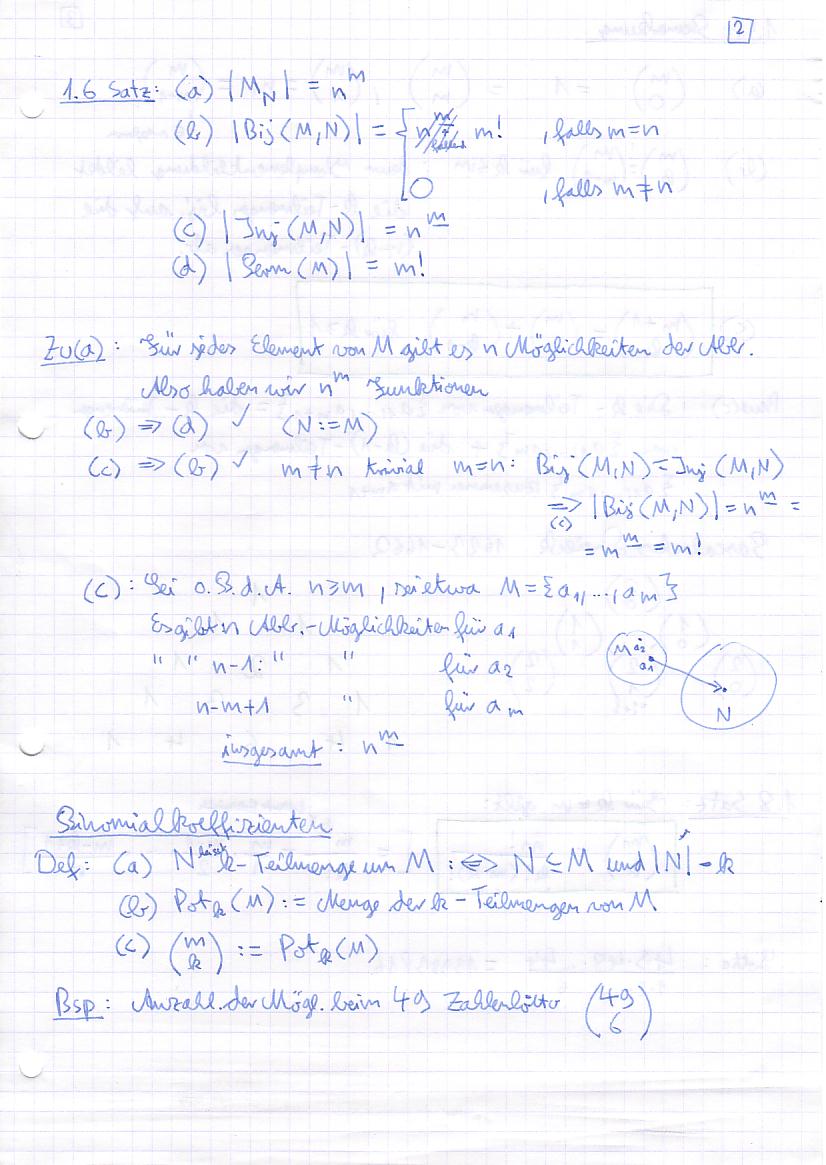 2
1.6 Satz: (a) |M_N| = n^m
(b) |Bij(M,N)| = { m! , falls m=n
0 , falls m≠n
(c) |Inj(M,N)| = n^{\underline{m}}
(d) |Perm(M)| = m!
Zu(a): Für jedes Element von M gibt es n Möglichkeiten der Abb.
Also haben wir n^m Funktionen
(b) ⇒ (d) ✓ (N:=M)
(c) ⇒ (b) ✓ m≠n trivial m=n: Bij(M,N)=Inj(M,N)
⇒(c) |Bij(M,N)| = n^{\underline{m}} =
= m^{\underline{m}} = m!
(c): Sei o.B.d.A. n≥m, sei etwa M={a_1,...,a_m}
Es gibt n Abb.-Möglichkeiten für a_1
" " n-1: " " für a_2
n-m+1 " für a_m
insgesamt: n^{\underline{m}}
M a_2
a_1
N
Binomialkoeffizienten
Def: (a) N heisst k-Teilmenge von M :⇔ N ⊆ M und |N| = k
(b) Pot_k(M) := Menge der k-Teilmengen von M
(c) (m über k) := Pot_k(M)
Bsp: Anzahl der Mögl. beim 49 Zahlenlotto (49 über 6)